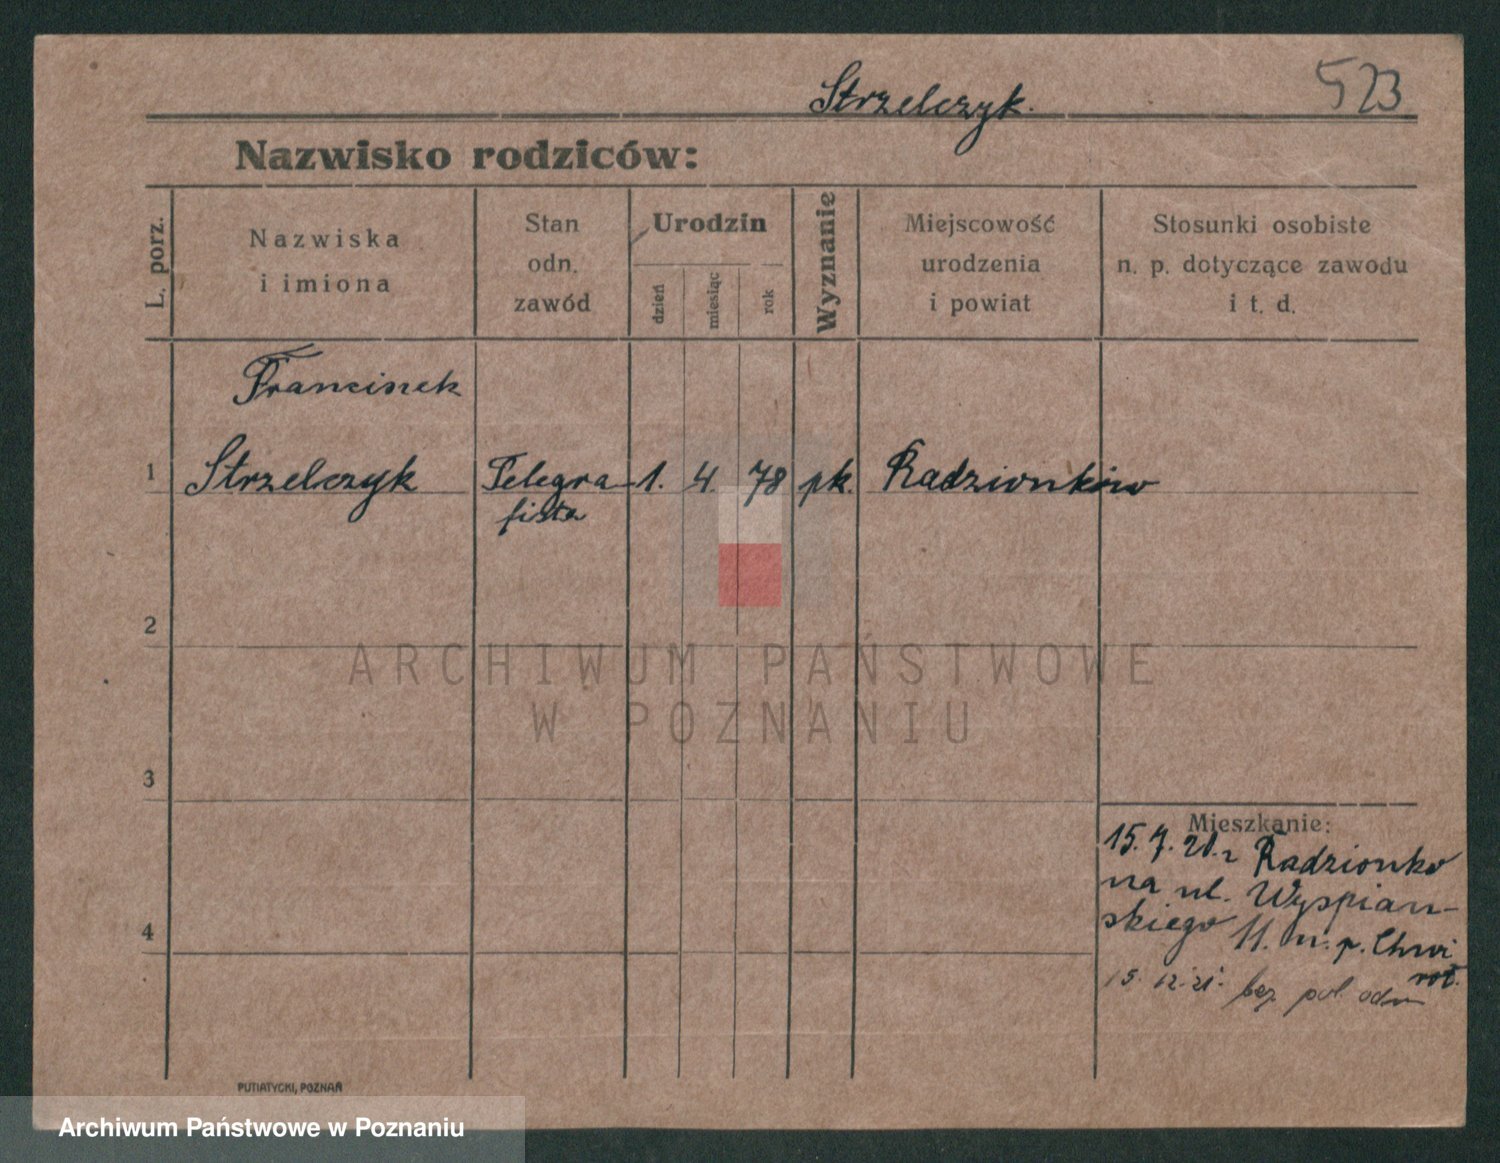 Strzelczyk.
523
Nazwisko rodziców:
L. porz.
Nazwiska
i imiona
Stan
odn.
zawód
Urodzin
dzień
miesiąc
rok
Wyznanie
Miejscowość
urodzenia
i powiat
Stosunki osobiste
n. p. dotyczące zawodu
i t. d.
Franciszek
1 Strzelczyk Telegra- 1. 4. 78 rk. Radzionków
fista
2
ARCHIWUM PAŃSTWOWE
W POZNANIU
3
4
Mieszkanie:
15. 7. 21. z Radzionko
na ul. Wyspiań-
skiego 11. m. p. Chwi
rot.
15. 12. 21. bez pol. odm
PUTIATYCKI, POZNAŃ
Archiwum Państwowe w Poznaniu